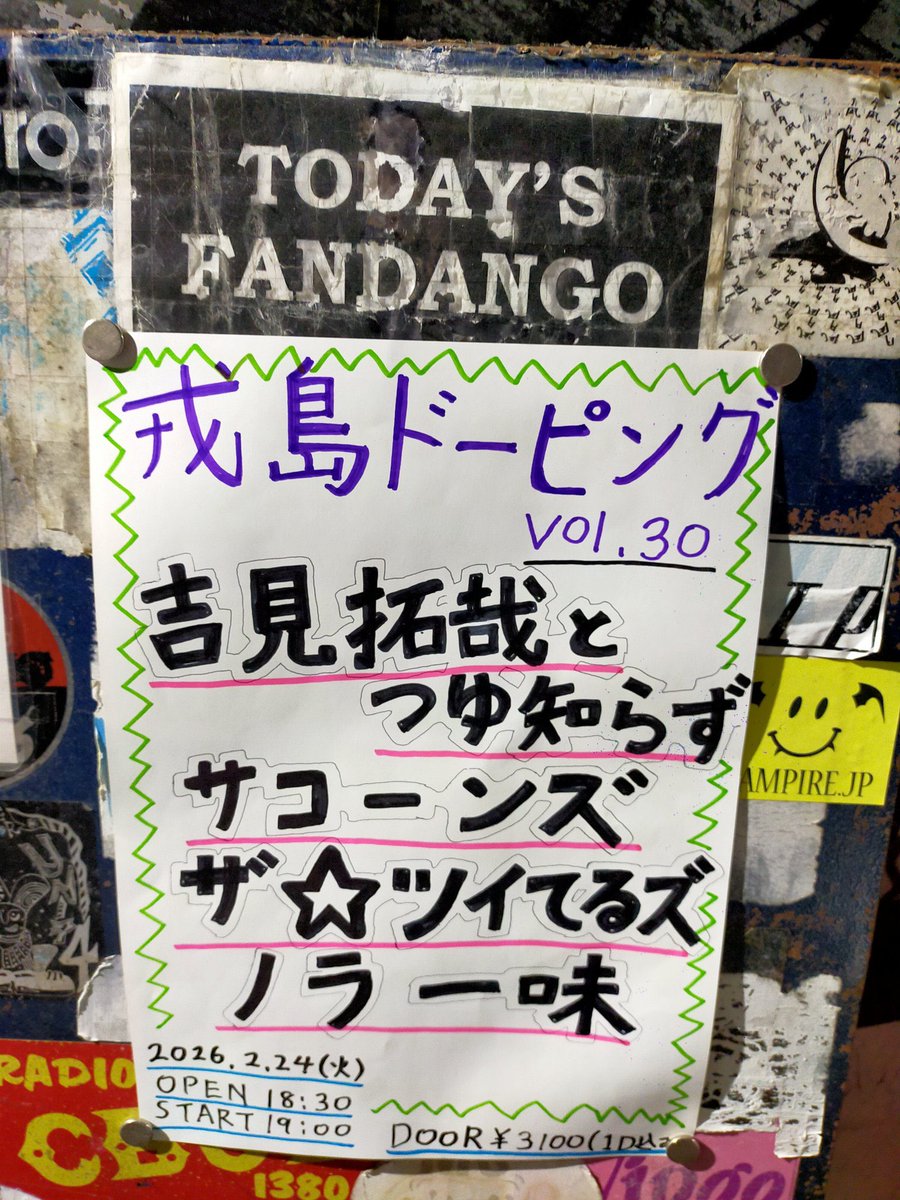 TODAY'S
FANDANGO
戎島ドーピング
vol.30
吉見拓哉と
つゆ知らず
サコーンズ
ザ☆ツイてるズ
ノラ一味
2026.2.24(火)
OPEN 18:30
START 19:00
DOOR ¥3100(1D込
AMPIRE.JP
RADIO
1380